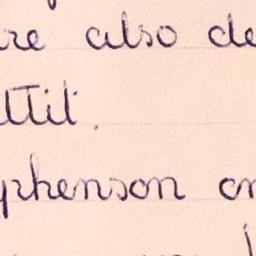 re also de
ttit.
phenson on